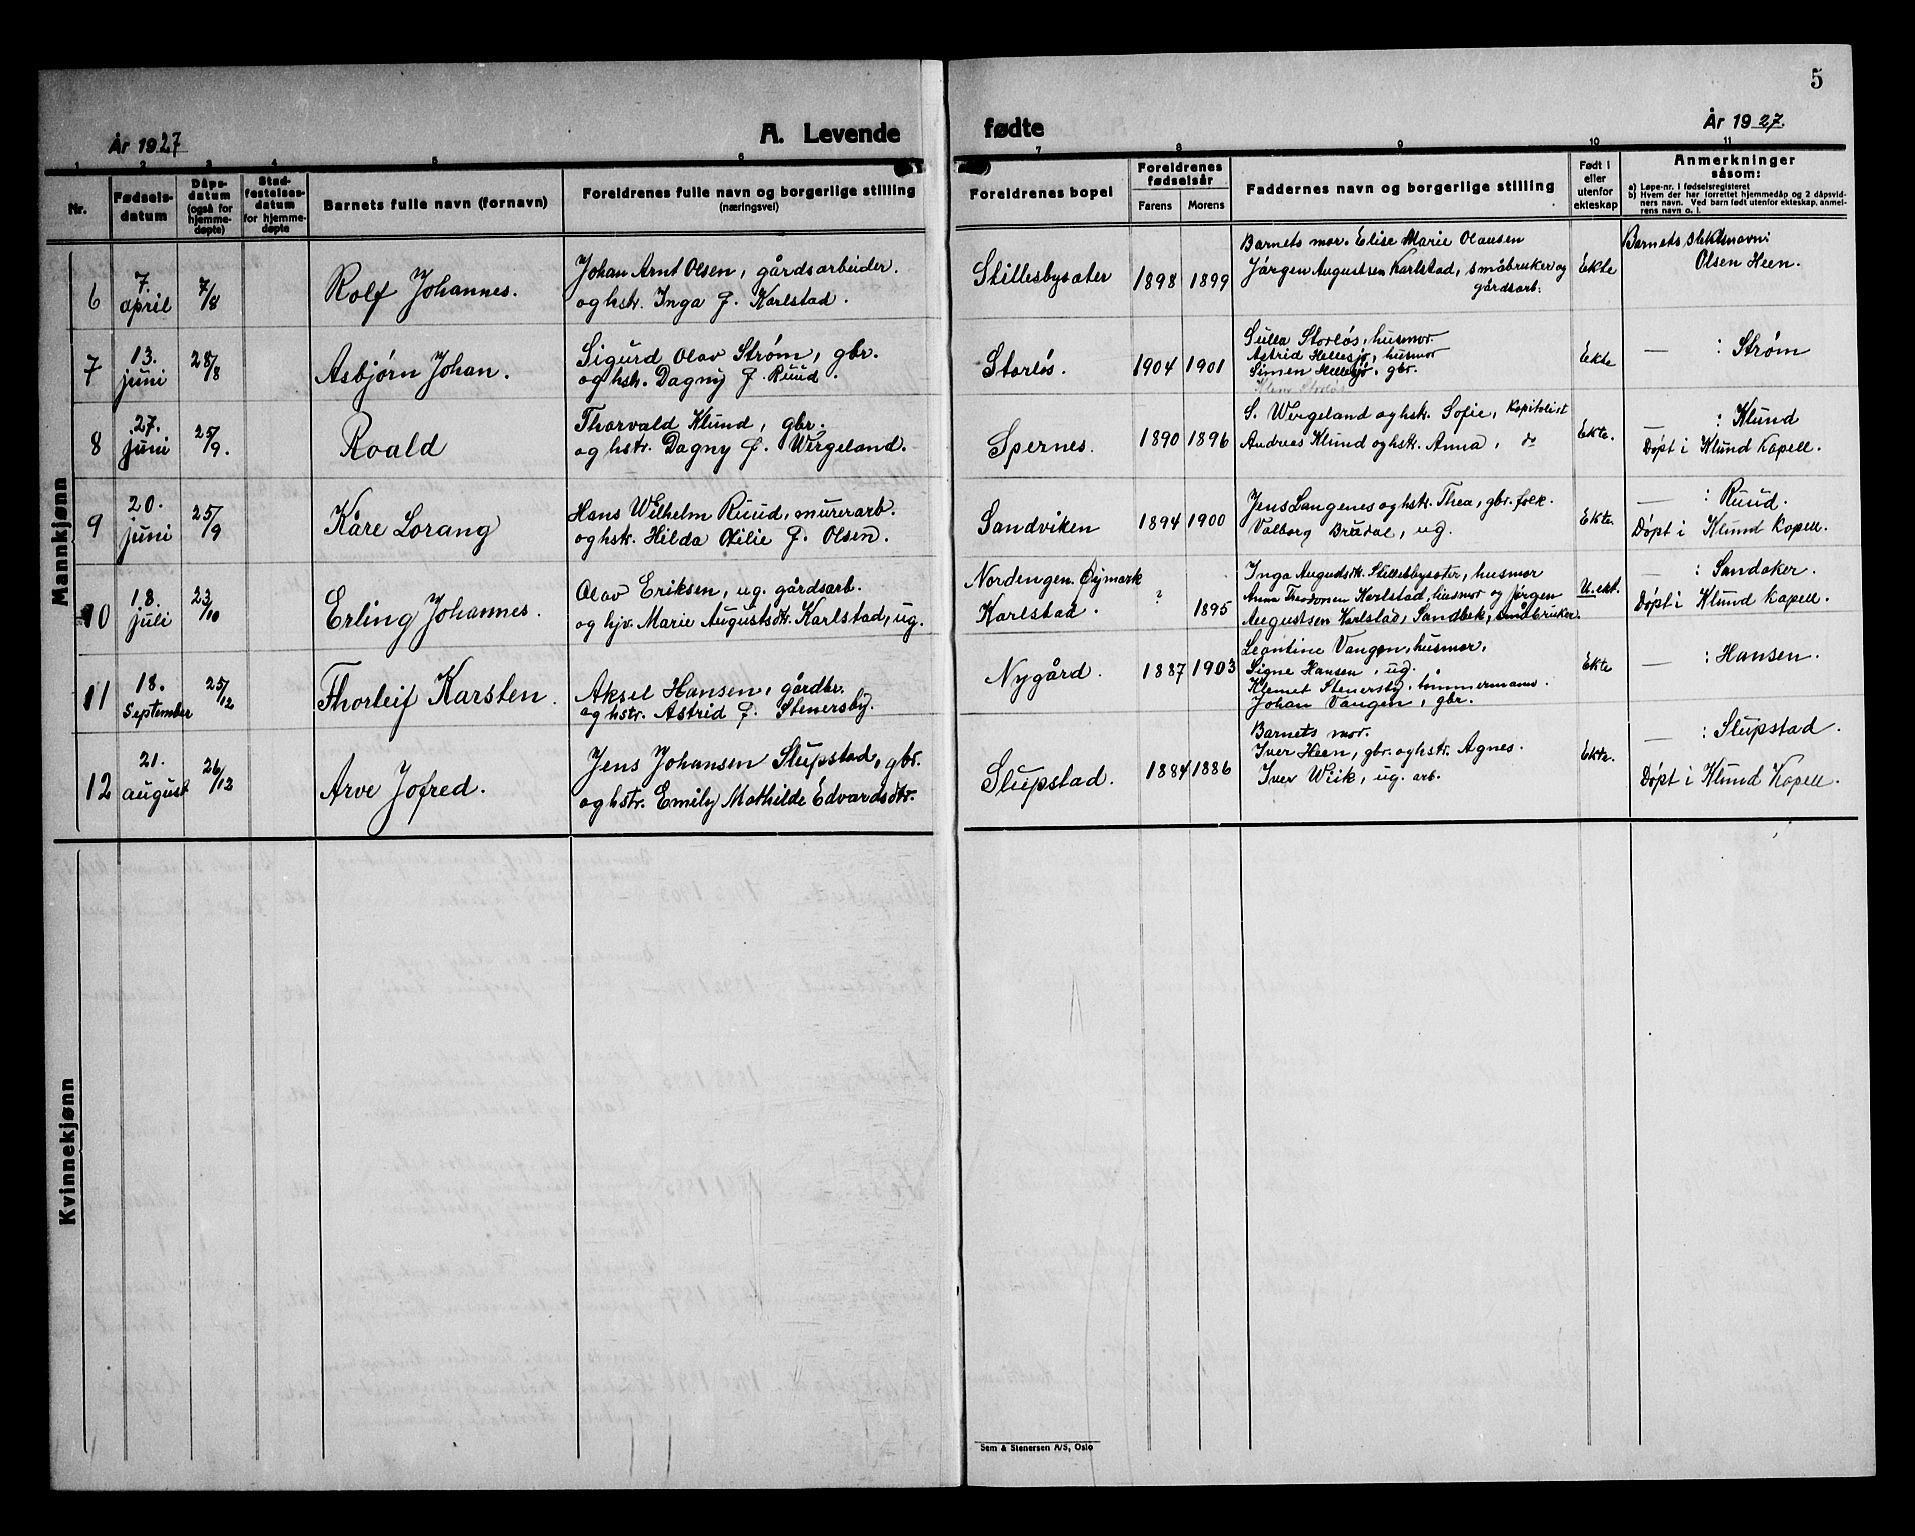 5
År 1927
A. Levende fødte
År 1927.
1 2 3 4 5 6 7 8 9 10 11
Nr.
Fødsels-
datum
Dåps-
datum
(også for
hjemme-
døpte)
Stad-
festelses-
datum
for hjemme-
døpte
Barnets fulle navn (fornavn)
Foreldrenes fulle navn og borgerlige stilling
(næringsvei)
Foreldrenes bopel
Foreldrenes
fødselsår
Farens
Morens
Faddernes navn og borgerlige stilling
Født i
eller
utenfor
ekteskap
Anmerkninger
såsom:
a) Løpe-nr. i fødselsregisteret
b) Hvem der har forrettet hjemmedåp og 2 dåpsvid-
ners navn. Ved barn født utenfor ekteskap, anmel-
rens navn o. l.
Mannkjønn
6
7.
april
7/8
Rolf Johannes.
Johan Arnt Olsen, gårdsarbeider.
og hstr. Inga f. Karlstad.
Stillesbysæter
1898
1899
Barnets mor. Elise Marie Olausen
Jørgen Augustsen Karlstad, småbruker og
gårdsarb.
Ekte
Barnets slektsnavn:
Olsen Heen.
7
13.
juni
28/8
Asbjørn Johan.
Sigurd Olav Strøm, gbr.
og hstr. Dagny f. Ruud.
Storløs.
1904
1901
Gulla Storløs, husmor.
Astrid Hellesjø, husmor
Simen Hellesjø, gbr.
Klem Storløs
Ekte
— : Strøm
8
27.
juni
25/9.
Roald
Thorvald Klund, gbr.
og hstr. Dagny f. Wergeland.
Spernes.
1890
1896
S. Wergeland og hstr. Sofie, kapitalist
Andreas Klund og hstr. Anna, do
Ekte.
— : Klund
Døpt i Klund Kapell.
9
20.
juni
25/9
Kåre Lorang
Hans Wilhelm Ruud, murerarb.
og hstr. Hilda Otilie f. Olsen.
Sandviken
1894
1900
Jens Langenes og hstr. Thea, gbr. folk.
Valborg Brudal, ug.
Ekte.
— : Ruud.
Døpt i Klund kapell.
10
18.
juli
23/10
Erling Johannes.
Olav Eriksen, ug. gårdsarb.
og hjv. Marie Augustsdtr. Karlstad, ug.
Nordengen. Øymark
Karlstad.
?
1895
Inga Augustsdtr. Stillesbysæter, husmor
Anna Theodorsen Karlstad, husmor og Jørgen
Augustsen Karlstad, Sandbek, småbruker.
U. ekt.
— : Sandaker.
Døpt i Klund kapell.
11
18.
september
25/12
Thorleif Karsten.
Aksel Hansen, gårdbr.
og hstr. Astrid f. Stenersby.
Nygård.
1887
1903
Leontine Vangen, husmor,
Signe Hansen, ug.
Klemet Stenersby, tømmermann.
Johan Vangen, gbr.
Ekte
— : Hansen.
12
21.
august
26/12
Arve Jofred.
Jens Johansen Slupstad, gbr.
og hstr. Emily Mathilde Edvardsdtr.
Slupstad.
1884
1886
Barnets mor.
Iver Heen, gbr. og hstr. Agnes.
Iver Wiik, ug. arb.
Ekte.
— : Slupstad.
Døpt i Klund Kapell.
Kvinnekjønn
Sem & Stenersen A/S, Oslo